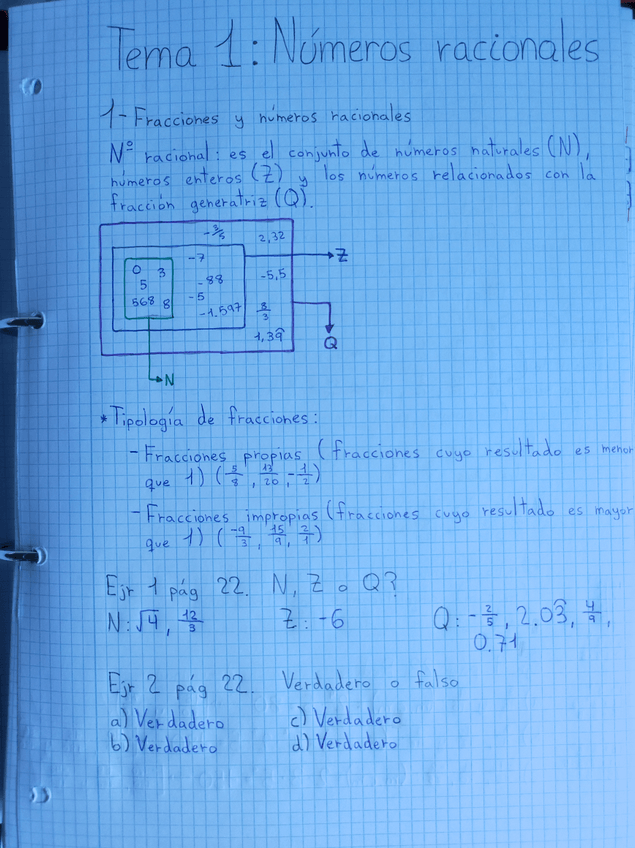 Tema 1: Números racionales
1- Fracciones y números racionales
Nº racional: es el conjunto de números naturales (N),
números enteros (Z) y los numeros relacionados con la
fracción generatriz (Q).
-3/5 2,32
-7 Z
0 3 -88 -5,5
5 -5
568 8 -1.597 8/3
1,39̂ Q
N
* Tipología de fracciones:
- Fracciones propias (fracciones cuyo resultado es menor
que 1) (5/8, 13/20, -1/2)
- Fracciones impropias (fracciones cuyo resultado es mayor
que 1) (-9/3, 15/9, 2/1)
Ejr 1 pág 22. N, Z o Q?
N: √4, 12/3 Z: -6 Q: -2/5, 2.03̂, 4/9,
0.71
Ejr 2 pág 22. Verdadero o falso
a) Verdadero c) Verdadero
b) Verdadero d) Verdadero